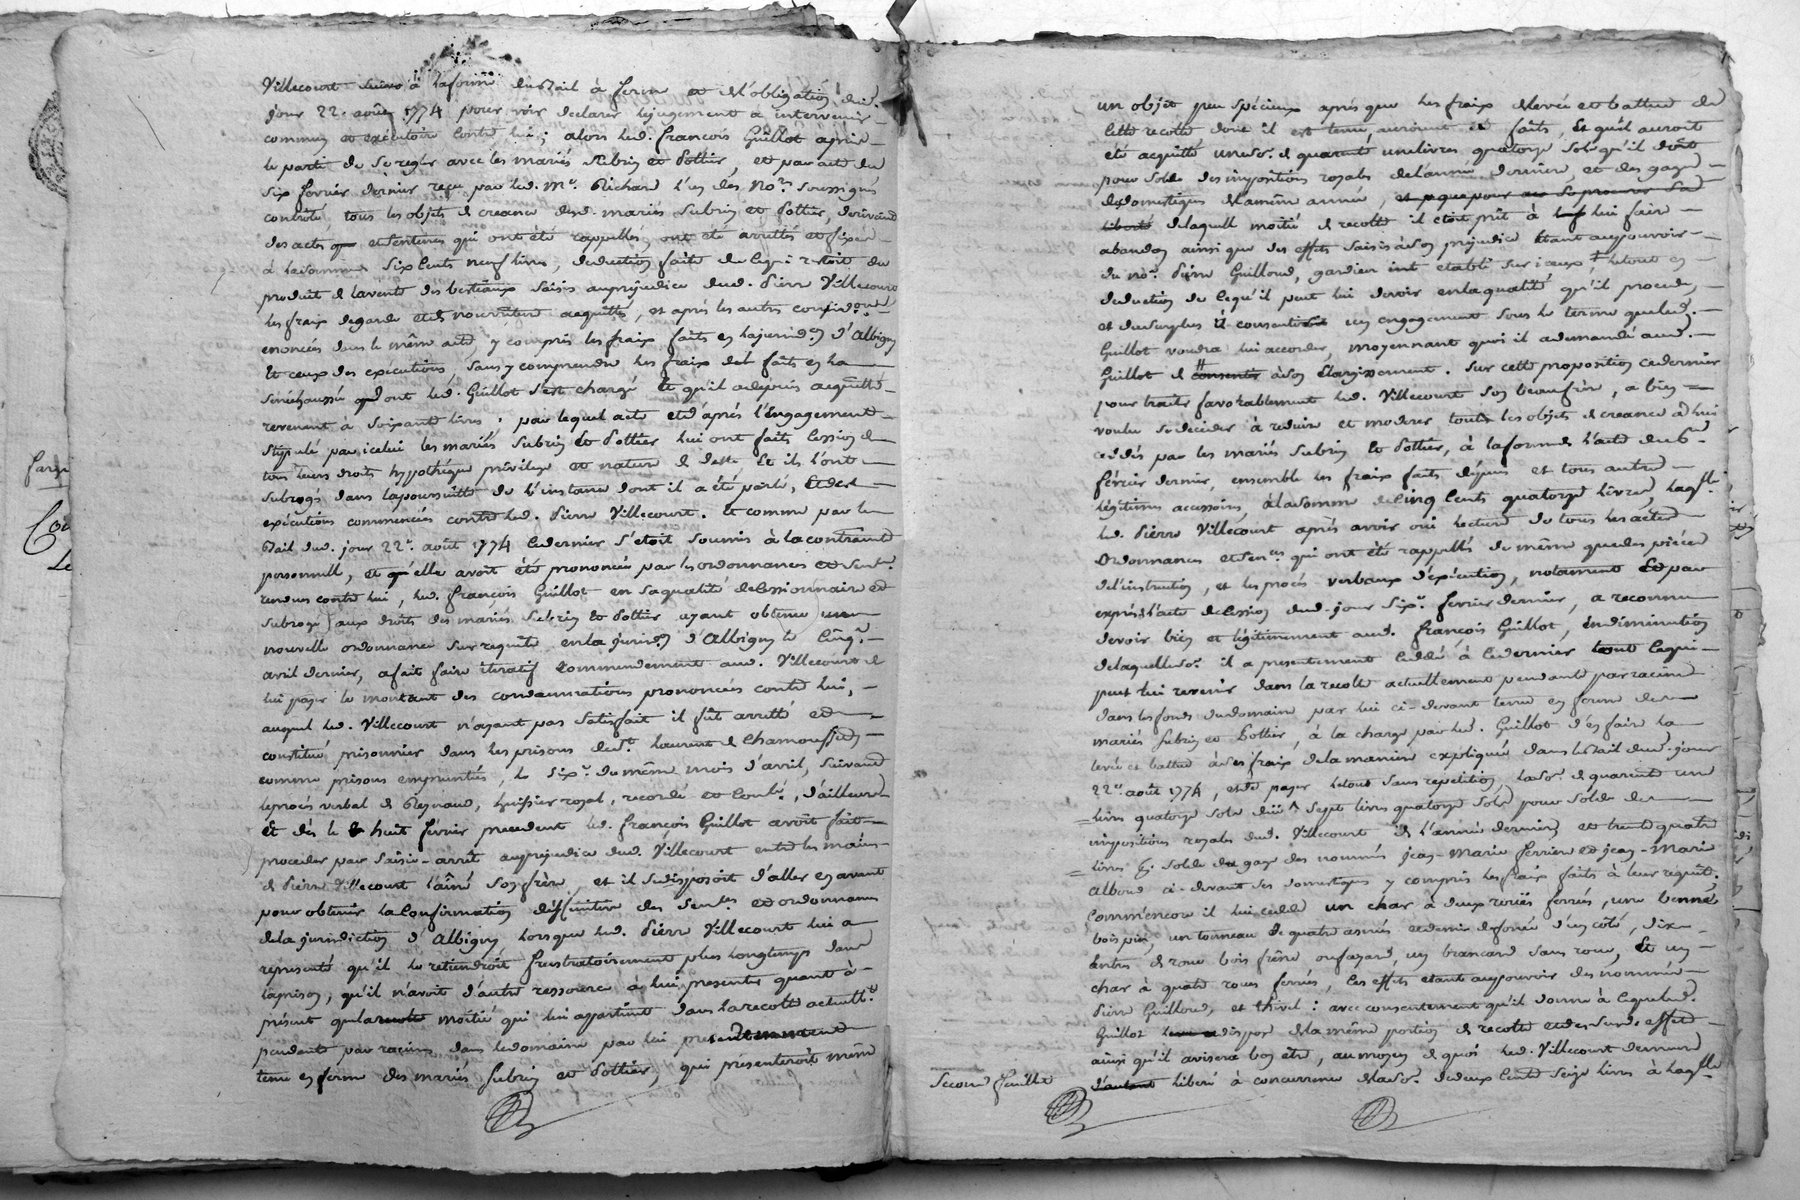 Villecourt suivant à la forme du bail à ferme et d'obligation dud.
jour 22. août 1774 pour voir declarer le jugement à intervenir
commun et exécutoire contre lui; alors led. françois Guillot a pris
le parti de se regler avec les mariés Subrin et Pottier et par acte du
six fevrier dernier reçu par led. Me. Richard l'un des Nores. soussignés
controlé, tous les objets de creance desd. mariés Subrin et Pottier, derivant
des actes et sentences qui ont été rappellés, ont été arrettés et fixés
à la somme six cents neuf livres, deduction faite de ce qui restoit du
produit de la vente des bestiaux saisis au prejudice dud. Pierre Villecourt
les frais de garde et de nourriture acquittés, et après les autres
enoncées dans le même acte, y compris les frais faits en la jurid.on d'Albigny
et ceux des exécutions, sans y comprendre les frais de faits en la
sénéchaussée dont led. Guillot s'est chargé et qu'il a depuis acquitté
revenant à soixante livres; par lequel acte et d'après l'engagement
stipulé par icelui les mariés Subrin et Pottier lui ont faits cession de
tous leurs droits hypothéque privilege et nature de dette, et ils l'ont
subrogé dans la poursuitte de l'instance dont il a été parlé, et des
exécutions commencées contre led. Pierre Villecourt. Et comme par le
Bail dud. jour 22e. août 1774 ce dernier s'étoit soumis à la contrainte
personnelle, et qu'elle avoit été prononcée par les ordonnances et sentces.
rendues contre lui, led. françois Guillot en sa qualité de cessionnaire et
subrogé aux droits des mariés Subrin et Pottier ayant obtenu une
nouvelle ordonnance sur requête en la jurid.on d'Albigny le cinqe.
avril dernier, a fait faire iteratif commandement aud. Villecourt de
lui payer le montant des condamnations prononcées contre lui,
auquel led. Villecourt n'ayant pas satisfait il fut arretté et
constitué prisonnier dans les prisons de St. Laurent de Chamousset
comme prisons empruntées, le sixe. du même mois d'avril, suivant
le procès verbal de Reynaud, huissier royal, recordé et contlé, d'ailleurs
et dès le huit février precedent led. françois Guillot avoit fait
proceder par saisie-arrêt au prejudice dud. Villecourt entre les mains
de Pierre Villecourt l'ainé son frère, et il se disposoit d'aller en avant
pour obtenir la confirmation diffinitive des sentces et ordonnances
de la jurisdiction d'Albigny, lorsque led. Pierre Villecourt lui a
représenté qu'il le retiendroit frustratoirement plus longtemps dans
la prison, qu'il n'avoit d'autre ressource à lui presenter quant à
présent que la moitié qui lui appartient dans la recolte actuelle
pendante par racines dans le domaine par lui presentement
tenu en ferme des mariés Subrin et Pottier, qui présenteroit même
un objet peu spécieux après que les fraix de levée et battue de
cette recolte dont il est tenu, auroient été faits, et qu'il auroit
été acquitté une so. de quarante une livres quatorze sols qu'il doit
pour solde des impositions royales de l'année derniere, et des gages
de domestiques de la même année, et que pour se procurer sa
liberté de laquelle moitié de recolte il etoit prêt à lui faire
abandon ainsi que des effets saisis à son préjudice étant au pouvoir
du no. Pierre Guilloud, gardien établi sur iceux, le tout en
deduction de ce qu'il peut lui devoir en la qualité qu'il procede,
et du surplus il consentiroit un engagement sous le terme que led.
Guillot voudra lui accorder, moyennant quoi il a demandé aud.
Guillot de consentir à son élargissement. Sur cette proposition ce dernier
pour traiter favorablement led. Villecourt son beaufrère, a bien
voulu se decider à reduire et moderer tous les objets de creance à lui
cedés par les mariés Subrin et Pottier, à la forme de l'acte du 6e.
février dernier, ensemble les fraix faits depuis et tous autres
légitimes accessoires, à la somme de cinq cents quatorze livres, laqlle.
led. Pierre Villecourt après avoir oui lecture de tous les actes
ordonnances et sences qui ont été rappellés de même que des pièces
de l'instruction, et les procès verbaux d'exécution, notament et par
exprès l'acte de cession dud. jour sixe. fevrier dernier, a reconnu
devoir bien et légitimement aud. françois Guillot, en diminution
de laquelle so. il a presentement cedé à ce dernier tout ce qui
peut lui revenir dans la recolte actuellement pendante par racines
dans les fonds du domaine par lui ci-devant tenu en ferme des
mariés Subrin et Pottier, à la charge par led. Guillot d'en faire la
levée et battue à ses fraix de la maniere expliquée dans le bail dud. jour
22e. août 1774, et de payer le tout sans repetition, la so. de quarante une
livres quatorze sols sept livres quatorze sols pour solde des
impositions royales dud. Villecourt de l'année derniere et trente quatre
livres p. solde du gage des nommés jean-Marie Ferriere et jean-Marie
Alboud ci-devant ses domestiques y compris les fraix faits à leur requête,
Comm'encore il lui cedde un char à deux roües ferrées, une benne
bois pin, un tonneau de quatre asnées et demie defoncé d'un coté, dix
entes de roue bois frêne ou fayard, un brancard sans roue, et un
char à quatre roues ferrées, ces effets étant au pouvoir des nommés
Pierre Guilloud, et Thivel: avec consentement qu'il donne à ce que led.
Guillot dispose de la même portion de recolte et desd. effets
ainsi qu'il avisera bon être, au moyen de quoi led. Villecourt demeure
d'autant liberé à concurrence de la so. de deux cents seize livres à laqlle
Seconde feuille